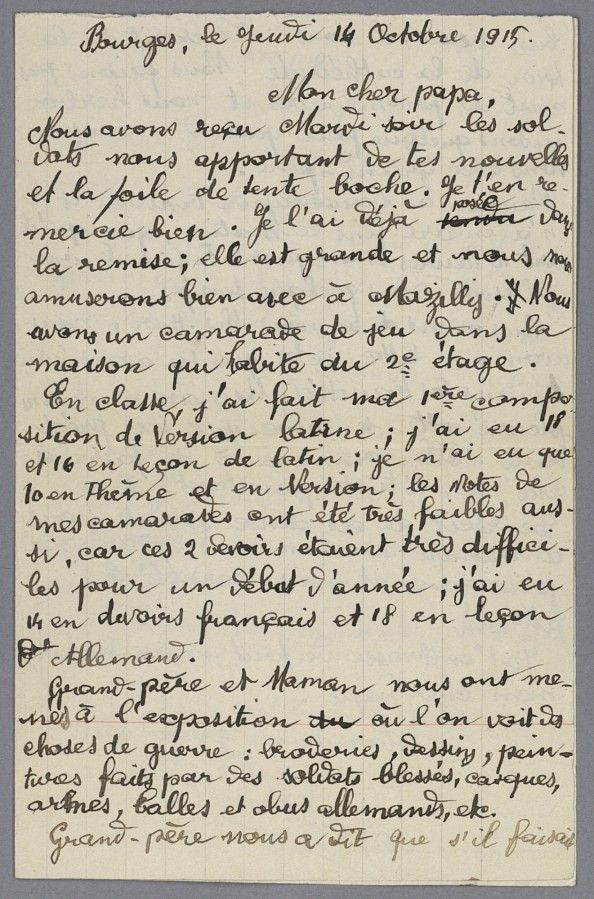 Bourges, le Jeudi 14 Octobre 1915.
Mon cher papa,
Nous avons reçu Mardi soir les sol-
dats nous apportant de tes nouvelles
et la toile de tente boche. Je t'en re-
mercie bien. Je l'ai déjà posée dans
la remise ; elle est grande et nous nous
amuserons bien avec à Mazilly. Nous
avons un camarade de jeu dans la
maison qui habite du 2e étage.
En classe, j'ai fait ma 1ère compo
sition de Version latine ; j'ai eu 18
et 16 en Leçon de latin ; je n'ai eu que
10 en Thème et en Version ; les Notes de
mes camarades ont été très faibles aus-
si, car ces 2 devoirs étaient très diffici-
les pour un début d'année ; j'ai eu
14 en devoirs français et 18 en leçon
d'Allemand.
Grand-père et Maman nous ont me-
nés à l'exposition où l'on voit des
choses de guerre : broderies, dessins, pein-
tures faits par des soldats blessés, casques,
armes, balles et obus allemands, etc.
Grand-père nous a dit que s'il faisait